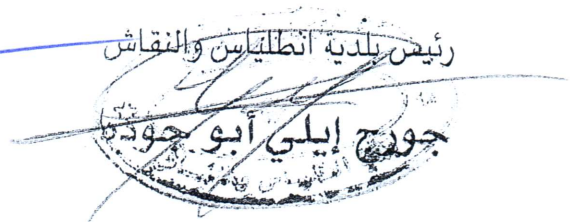 رئيس بلدية انطلياس والنقاش
جورج إيلي أبو جودة